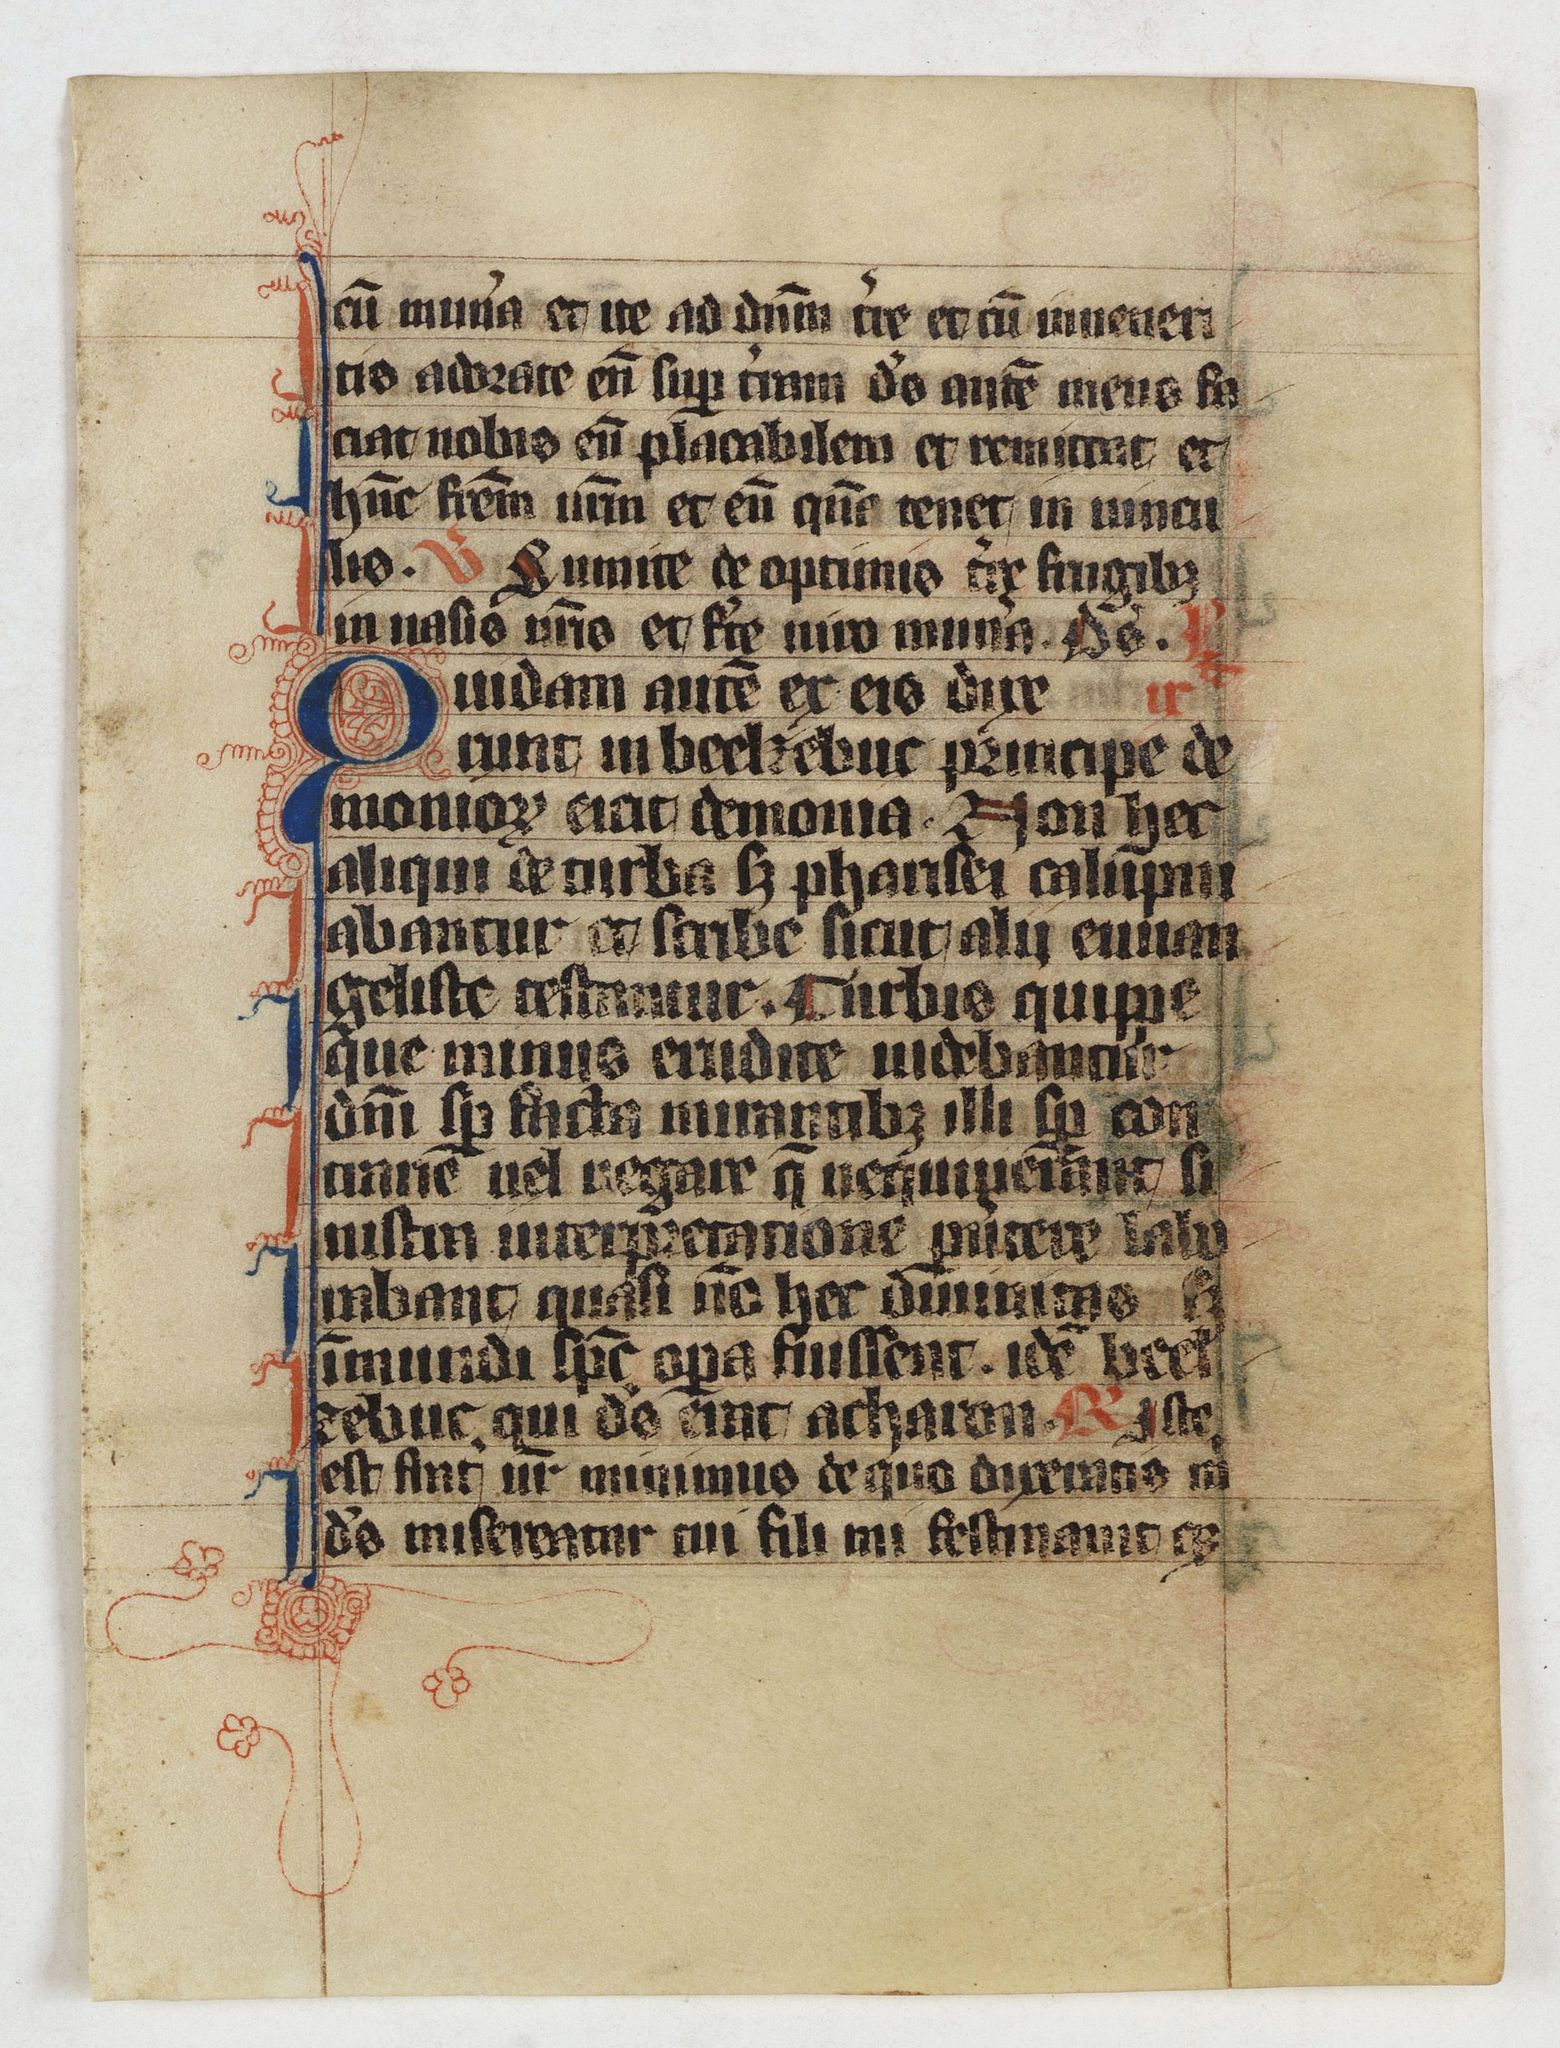 cū mun̄a et ite ad dn̄m t̄re et cū inueneri
tis adorate eū sup t̄ram ds̄ autē meus fa
ciat uobis eū placabilem et remittat et
hūc frēm ur̄m et eū quē tenet in uincu
lis. V Sumite de optimis t̄re frugibꝫ
in uasis ur̄is et fer̄te uiro mun̄a. Ds̄.
Quidam autē ex eis dixe
runt in beelzebuc principe de
monioꝝ eicit demonia. Non hec
aliqui de turba sꝫ pharisei calūpni
abantur et scribe sicut alij euuan
geliste testantur. Turbis quippe
que minus erudite uidebantur
dn̄i sp facta mirantibꝫ illi sp con
trariē uel negare q̄ nequiuerant si
nistra interpretatione puertere labo
rabant quasi nō hec diuinitatis sꝫ
īmundi spc opa fuissent. idē beel
zebuc qui ds̄ erat acharon. R Iste
est frat̄ ur̄ minimus de quo dixeratis m
ds̄ misereatur tui fili mi festinauit qꝫ